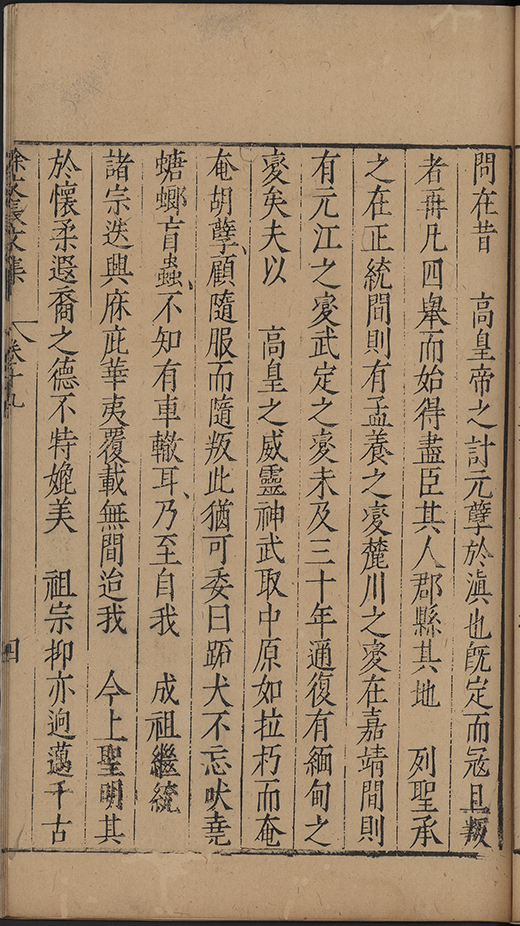 問在昔　高皇帝之討元孽於滇也旣定而冦且叛
者再凡四舉而始得盡臣其人郡縣其地　列聖承
之在正統間則有孟養之變麓川之變在嘉靖間則
有元江之變武定之變未及三十年適復有緬甸之
變矣夫以　高皇之威靈神武取中原如拉朽而奄
奄胡孽、顧隨服而隨叛此猶可委曰跖犬不忘吠堯
螗螂盲蟲、不知有車轍耳、乃至自我　成祖繼統
諸宗迭興庥庇華夷覆載無間迨我　今上聖明其
於懷柔遐裔之德不特媲美　祖宗抑亦逈邁千古
徐文長文集　卷十九　四